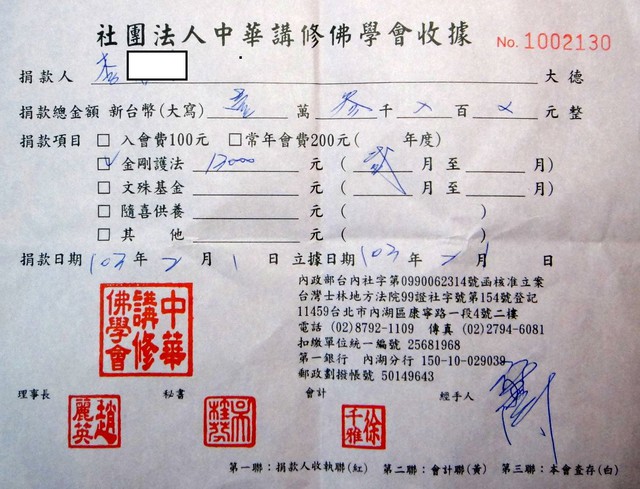 社團法人中華講修佛學會收據 No. 1002130
捐款人 李 大德
捐款總金額 新台幣(大寫) 壹 萬 参 千 ㄨ 百 ㄨ 元 整
捐款項目 □ 入會費100元 □常年會費200元( 年度)
□ 金剛護法 13000 元 ( 月 至 月)
□ 文殊基金 元 ( 月 至 月)
□ 隨喜供養 元 ( )
□ 其 他 元 ( )
捐款日期 103 年 2 月 1 日 立據日期 103 年 2 月 1 日
內政部台內社字第0990062314號函核准立案
台灣士林地方法院99證社字號第154號登記
11459台北市內湖區康寧路一段4號二樓
電話 (02)8792-1109 傳真 (02)2794-6081
扣繳單位統一編號 25681968
第一銀行 內湖分行 150-10-029039
郵政劃撥帳號 50149643
中華講修佛學會
理事長 秘書 會計 經手人
趙麗英 吳桂芬 徐千雅 劉
第一聯：捐款人收執聯(紅) 第二聯：會計聯(黃) 第三聯：本會查存(白)